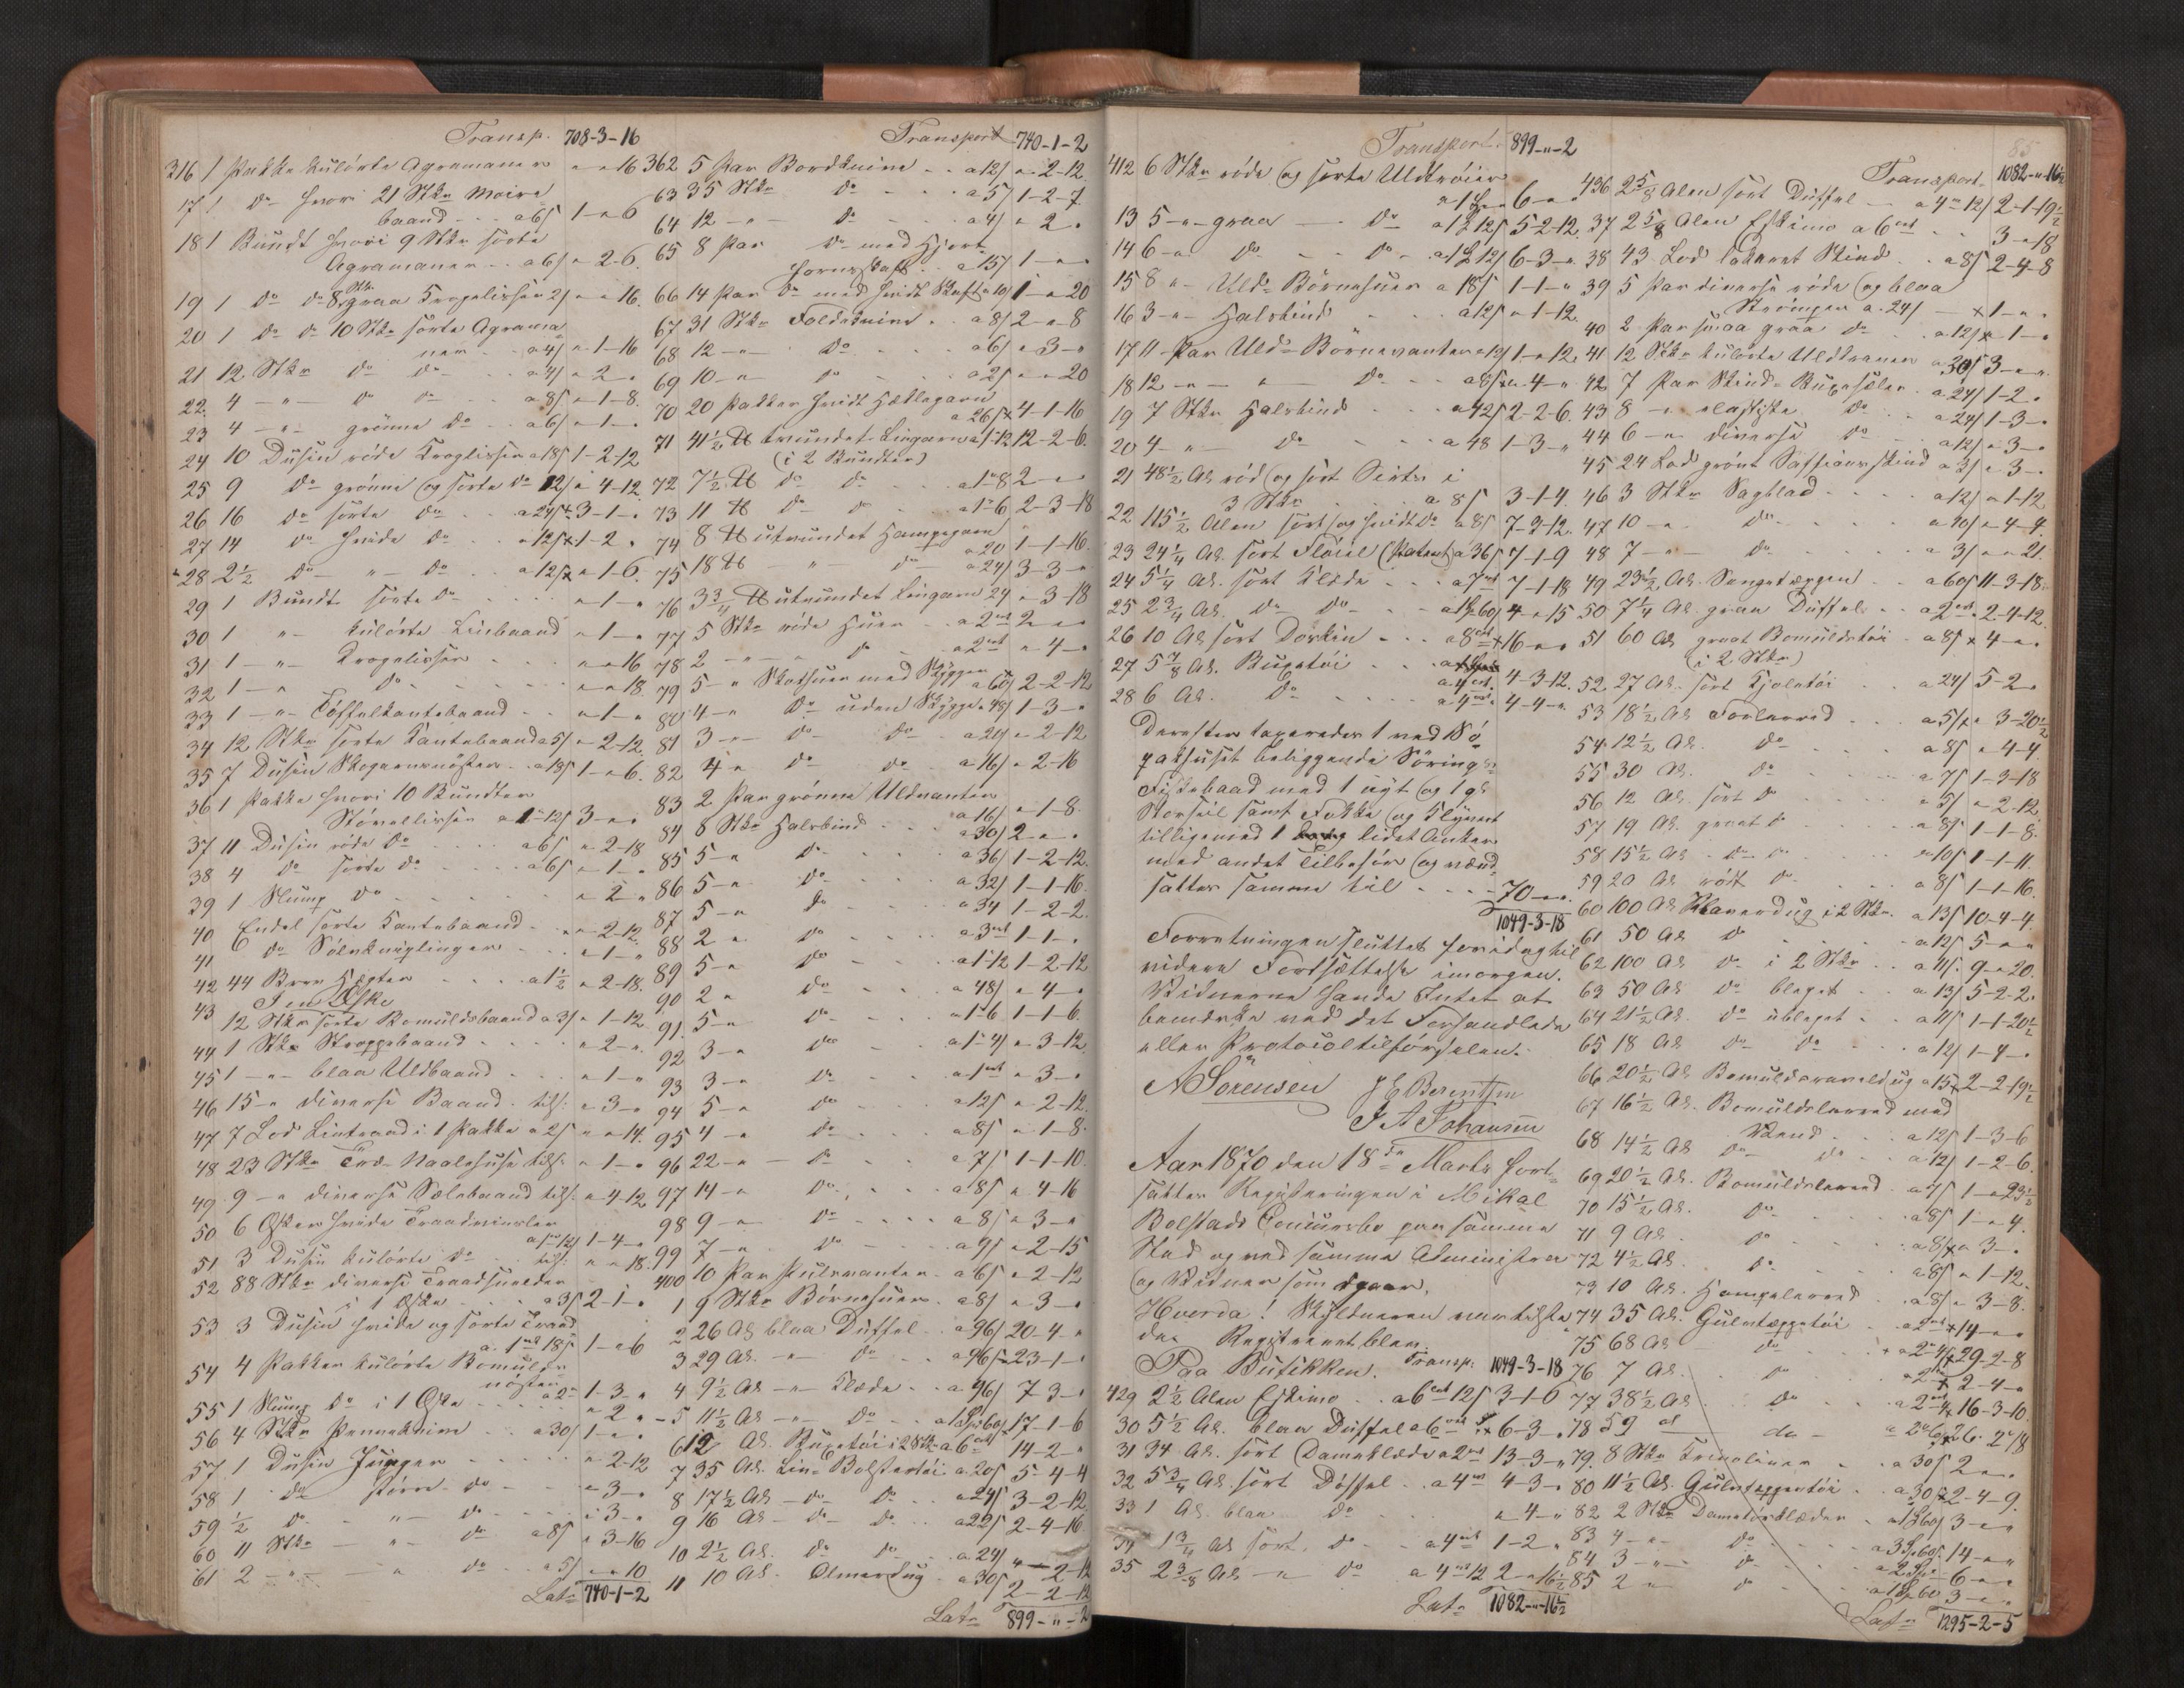 Transp. 708-3-16
316 1 Pakke kulörte Agramaner " - " 16
17 1 do hvori 21 Stkr Moire
baand - - a 6/ 1 - " 6
18 1 Bundt hvori 9 Stkr sorte
Agramaner - - a 6/ " 2-6.
19 1 do do 8 Stkr graa Trogelisser 2/ " - " 16.
20 1 do do 10 Stkr sorte Agrama
ner - - a 4/ " 1-16
21 12 Stkr do do - - a 4/ " 2 - "
22 4 - " - do do - - a 8/ " 1-8.
23 4 - " - grönne do - a 6/ " 1 - "
24 10 Dusin röde Troglisser a 18/ 1-2-12
25 9 do grönne og sorte do 12/ " 4-12
26 16 do sorte do - - a 24/ 3-1 - "
27 14 do hvide do - - a 12/ 1-2 "
28 2½ do - " - do - - a 12/ " 1-6.
29 1 Bundt sorte do " - 1 - "
30 1 " - kulörte Linbaand " - 1 - "
31 1 - " - Trogelisser " - " 16
32 1 - " do " - " 18.
33 1 - " - Töffelkantebaand " - 1 - "
34 12 Stkr sorte Kantebaand a 5/ " 2-12.
35 7 Dusin Skogarnsnöster - a 18/ 1 - " 6.
36 1 Pakke hvori 10 Bundter
Stövellisser a 1 - 12/ 3 - "
37 11 Dusin röde do a 6/ " 2-18
38 4 do sorte do a 6/ " 1 - "
39 1 Slump do " - 2 - "
40 Endel sorte Kantebaand " - 2-12.
41 6 do Sölvkniplinger " - 1 - "
42 44 Brev Hegter - - - a 1½ " 2-18.
I en Æske
43 12 Stkr sorte Bomuldsbaand a 3/ " 1-12
44 1 Stk Stroppebaand " - 2 - "
45 1 - " - blaa Uldbaand " 1 - "
46 15 - " diverse Baand - tils: " 3 - "
47 7 Lod Lintraad i 1 Pakke a 2/ " - " 14.
48 23 Stkr Træ-Naalehuse tils: " 1 - "
49 9 - " diverse Selebaand tils: " 4-12
50 6 Æsker hvide Traadvinsler
a 1 - 12/ 1-4 - "
51 3 Dusin kulörte do tils: " - " 18.
52 88 Stkr diverse Traadsneller
i 1 Æske a 3/ 2-1 - "
53 3 Dusin hvide og sorte Traad
a 1 mk 18/ 1 - " 6
54 4 Pakker kulörte Bomulds-
nöster a 2 - 1-3 - "
55 1 Slump do i 1 Æske " 2 " -
56 4 Stkr Penneknive - - a 30/ 1 - "
57 1 Dusin " - 2-12
58 1 do större do " - 3 - "
59 ½ do - " - do " 3 - "
60 11 Stkr - " - do a 8/ " 3-16
61 2 - " - " do a 5/ " - " 10
Lats 740-1-2
Transport 740-1-2
362 5 Par Bordknive - - a 12/ " 2-12.
63 35 Stkr do - - - a 5/ 1-2-7
64 12 - " - do - - - a 4/ " 2 - "
65 8 Par do med Hjort
horns skaft - - a 15/ 1 - "
66 14 Par do med hvidt Skaft a 10/ 1 - " 20
67 31 Stkr Foldeknive - - a 8/ 2 - " 8
68 12 - " - do - - - a 6/ " 3 - "
69 10 - " - do - - - a 2/ " - " 20
70 20 Pakker hvidt Heklegarn
a 26/ 4-1-16
71 41½ ℔ tvundet Lingarn a 1 - 12 12-2-6.
(i 2 Bundter)
72 7½ ℔ do do - - a 1 - 8 2 - "
73 11 ℔ do do - a 1 - 6 2-3-18
74 8 ℔ utvundet Hampegarn
a 20 1-1-16.
75 18 ℔ - " - do a 24/ 3-3 - "
76 3¾ ℔ utvundet Lingarn 24 " 3-18
77 5 Stkr röde Huer - - a 2 mk 2 - "
78 2 - " - " do - a 2 mk " 4 - "
79 5 - " Skothuer med Skygger a 60/ 2-2-12
80 4 - " do uden Skygge a 48/ 1-3 - "
81 3 - " - do do - a 24/ " 2-12
82 4 - " do do - a 16/ " 2-16
83 2 Par grönne Uldvanter
a 16/ " 1-8.
84 8 Stkr Halsbind - - - a 30/ 2 - "
85 5 - " do - - - a 36/ 1-2-12.
86 5 - " do - - - a 32/ 1-1-16
87 5 - " do - - - a 34 1-2-2.
88 2 - " do - - a 3 mk 1-1 - "
89 5 - " do - - a 1 - 12 1-2-12
90 2 - " do - - - a 48/ " 4 - "
91 5 - " do - - - a 1 - 6 1-1-6.
92 3 - " do - - - a 1 - 4/ " 3-12.
93 3 - " do - - - a 1 mk " 3 - "
94 5 - " do - - - a 12/ " 2-12.
95 4 - " do - - - a 8/ " 1-8.
96 22 - " - do - - - a 7/ 1-1-10.
97 14 - " do - - - a 8/ " 4-16
98 9 - " do - - - a 8/ " 3 - "
99 7 - " do - - - a 9/ " 2-15
400 10 Par Pulsvanter - a 6/ " 2-12
1 9 Stkr Börnehuer - a 8/ " 3 - "
2 26 Al. blaa Düffel - a 96/ 20-4 - "
3 29 Al. - " do - - a 96/ 23-1 - "
4 9½ Al. - " Klæde - - a 96/ 7 3 - "
5 11½ Al. - " - do - - a 1 Sp 60/ 17-1-6
6 12 Al. Buxetöi i 2 Stkr a 6 ort 14-2 - "
7 35 Al. Lin-Bolstertöi a 20/ 5-4-4
8 17½ Al. - do do - - a 24/ 3-2-12
9 16 Al. - do do - - a 22/ 2-4-16
10 2½ Al. do do - - a 24/ " - 2-12
11 10 Al. Olmerdug - a 30/ 2-2-12
Lats 899-"-2
Transport 899-"-2
412 6 Stkr röde og sorte Uldtröier
a 1 Sp 6 - "
13 5 - " - graa - do a 1 Sp 12/ 5-2-12.
14 6 - " do - - do - a 1 Sp 12/ 6-3 - "
15 8 " - Uld-Börnehuer a 18/ 1-1 - "
16 3 - " - Halsbind - - a 12/ " 1-12.
17 11 Par Uld-Börnevanter a 12/ 1 - " 12.
18 12 - " - " - do - - a 8/ " 4 - "
19 7 Stkr Halsbind - - - a 42/ 2-2-6.
20 4 - " - do - - - a 48 1-3 - "
21 48½ Al. röd og sort Sirts i
3 Stkr - - - a 8/ 3-1-4
22 115½ Alen sort og hvidt do a 8/ 7-3-12.
23 24¼ Al. sort Flöiel (Patent) a 36/ 7-1-9
24 5¼ Al. sort Klæde - - - a 7 mk 7-1-18
25 2¾ Al. do do - - - a 1 Sp 60/ 4 - " 15
26 10 Al. sort Doskin - - - a 8 ort 16 - "
27 5⅞ Al. Buxetöi - - a 4 ort 4-3-12.
28 6 Al. do - - - a 4 mk 4-4 - "
Derefter taxeredes 1 ved Sö
pakhuset beliggende Söring-
Fiskebaad med 1 nyt og 1 gl.
Storseil samt Fokke og Klyver
tilligemed 1 lidet Anker
med andet Tilbehör og værd
sattes samme til - - - 70 - "
1049-3-18
Forretningen sluttet foridag til
videre Fortsættelse imorgen.
Vidnerne havde Intet at
bemærke ved det Forhandlede
eller Protocoltilförselen.
A Sörensen J E Berentsen
J A Johansen
Aar 1870 den 18de Marts fort-
sattes Registeringen i Mikal
Bolstads Concursbo paa samme
Sted og ved samme Administra
og Vidner som igaar.
Hvorda! Skyldneren var tilstede
Registreret blev:
Paa Butikken. Transp: 1049-3-18
429 2½ Alen Eskimo - - a 6 ort 12/ 3-1-6
30 5½ Al. blaa Duffel a 6 ort 6-3 - "
31 34 Al. sort Dameklæde a 2 mk 13-3 - "
32 5¾ Al. sort Döffel - - a 4 mk 4-3 - "
33 1 Al. blaa do " 4 - "
34 1¾ Al. sort do - - a 4 mk 1-2 - "
35 2⅜ Al. - " do a 4 mk 12 2 - " 16½
Lats 1082-"-16½
85
Transport 1082-"-16½
436 2⅝ Alen sort Duffel - - a 4 - 12/ 2-1-19½
37 2⅝ Alen Eskimo a 6 ort - - 3 - " 18
38 43 Lod lakeret Skind - - a 8/ 2-4-8
39 5 Par diverse röde og blaa
Strömper a 24/ - 1 - "
40 2 Par smaa graa do - a 12/ " 1 - "
41 12 Stkr kulörte Uldtraner a 30/ 3 - "
42 7 Par Skind-Buxeseler - a 24/ 1-2 - "
43 8 - " elastiske do - a 24/ 1-3 - "
44 6 - " diverse do - a 12/ " 3 - "
45 24 Lod grönt Saffiansskind a 3/ " 3 - "
46 3 Stkr Sagblad - - - a 12/ " 1-12
47 10 - " do - - - - a 10/ " 4-4.
48 7 - " - do - - - - a 3/ " - " 21.
49 23½ Al. Sengetæppen - - a 60/ 11-3-18.
50 7¼ Al. graa Duffel - - a 2 ort 2-4-12.
51 60 Al. graat Bomuldstöi - a 8/ 4 - "
(i 2 Stkr)
52 27 Al. sort Kjoletöi - - a 24/ 5-2 - "
53 18½ Al. Foerlerred - - - a 5/ " 3-20½
54 12½ Al. do - - - a 8/ " 4-4
55 30 Al. do - - - a 7/ 1-3-18
56 12 Al. sort do - - - a 5/ " 2-12
57 19 Al. graat do - - - a 8/ 1-1-8.
58 15½ Al. do do - - - a 10/ 1-1-11
59 20 Al. rödt do - - - a 8/ 1-1-16.
60 100 Al. Klaverdug i 2 Stkr. a 13/ 10-4-4
61 50 Al. do - - - a 12/ 5 - "
62 100 Al. do i 2 Stkr - - a 11/ 9 - " 20.
63 50 Al. do bleget - - a 13/ 5-2-2.
64 21½ Al. do ubleget - - a 11/ 1-1-20½
65 18 Al. do do - - - a 12/ 1-4 - "
66 20½ Al. Bomuldsravneldug a 15 2-2-19½
67 16½ Al. Bomuldslerred med
Rand - - - a 12/ 1-3-6
68 14½ Al. do do - - a 12/ 1-2-6.
69 20½ Al. Bomuldslerred - a 7/ 1 - " 23½
70 15½ Al. do - - - a 8/ 1 - " 4.
71 9 Al. do - - - a 8/ " 3 - "
72 4½ Al. do - - - a 8/ " 1-12.
73 10 Al. Hampelerred - - a 8/ " 3-8.
74 35 Al. Gulvtæppetöi - - a 2 mk 14 - "
75 68 Al. do - - a 2 - 4/ 29-2-8
76 7 Al. do - - a 2 - 2-4 - "
77 38½ Al. do - - a 2 - 4 16-3-10.
78 59 al do - a 2 - 6 26-2-18
79. 8 Stkr Krinoliner - - a 30/ 2 - "
80 11½ Al. Gulvtæppetöi - - a 30/ 2-4-9.
82 2 Stkr Dametörklæder - a 1 Sp 60/ 3 - "
83 4 - " do - - - a 3 Sp 60/ 14 - "
84 3 - " - do - - - a 2 Sp 6 - "
85 2 - " do - - - a 1 Sp 60 3 - "
Lats 1295-2-5